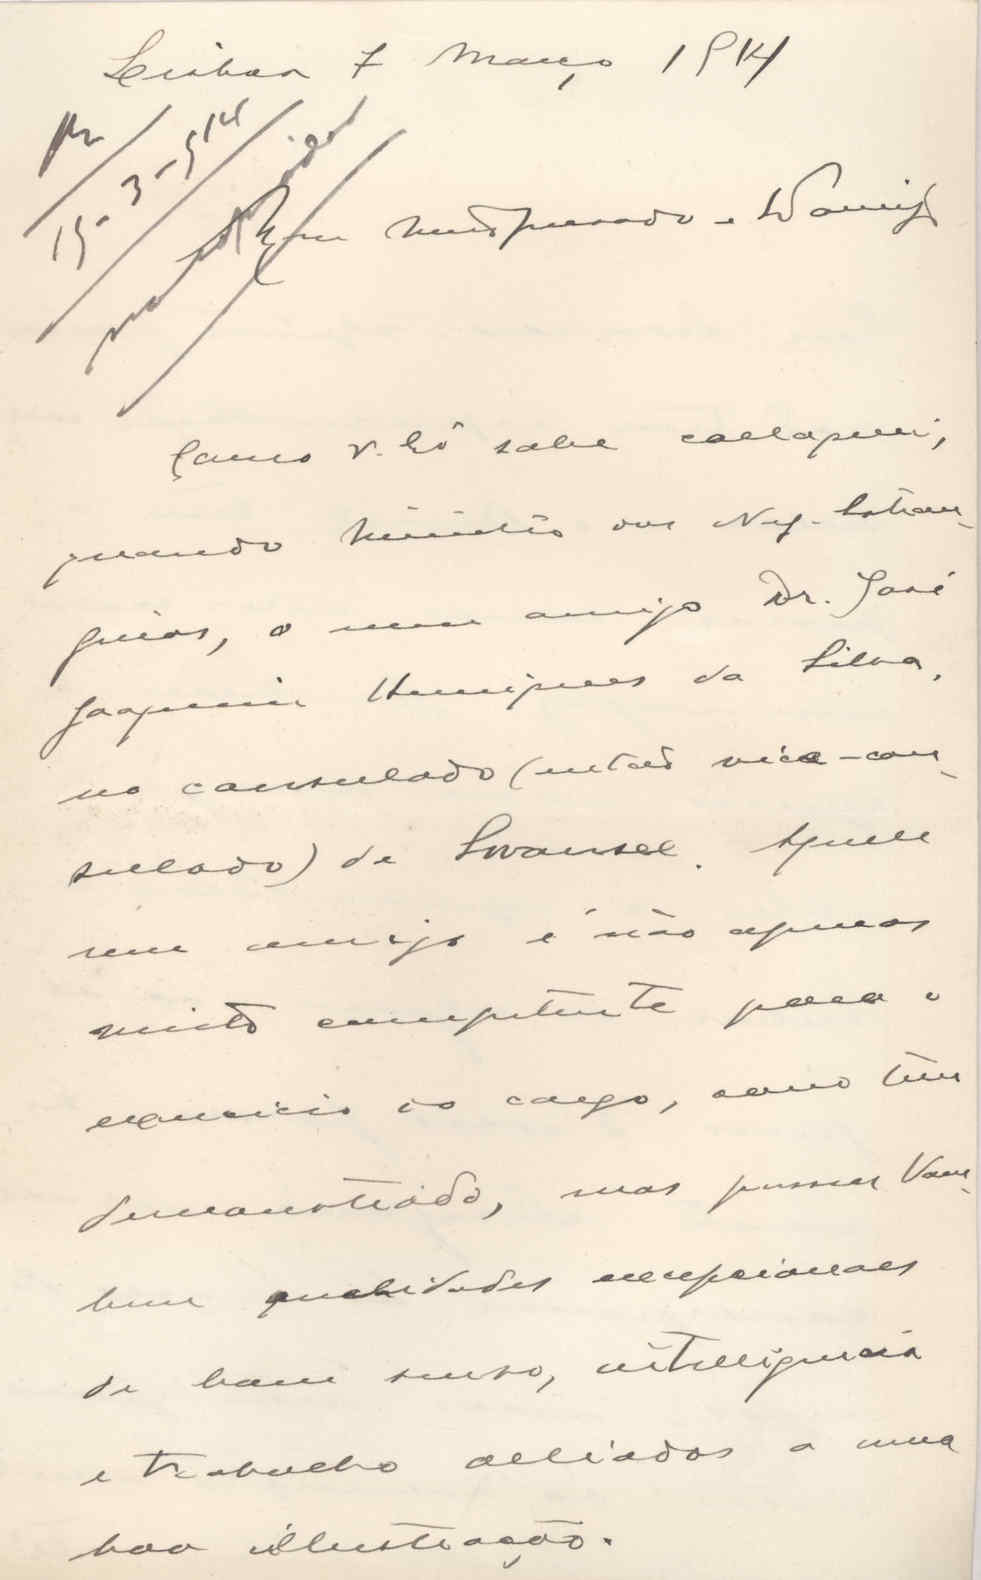 Lisboa 7 Março 1914
15-3-914
Meu muito prezado e bom Amigo
Como V. Exª sabe colloquei,
quando Ministro dos Neg. Estran-
geiros, o meu amigo Dr. José
Joaquim Henriques da Silva,
no consulado (então vice-con-
sulado) de Swansee. Aquele
meu amigo é não apenas
muito competente para o
exercicio do cargo, como tem
demonstrado, mas possue tam-
bem qualidades excepcionaes
de bom senso, intelligencia
e trabalho alliados a uma
boa illustração.